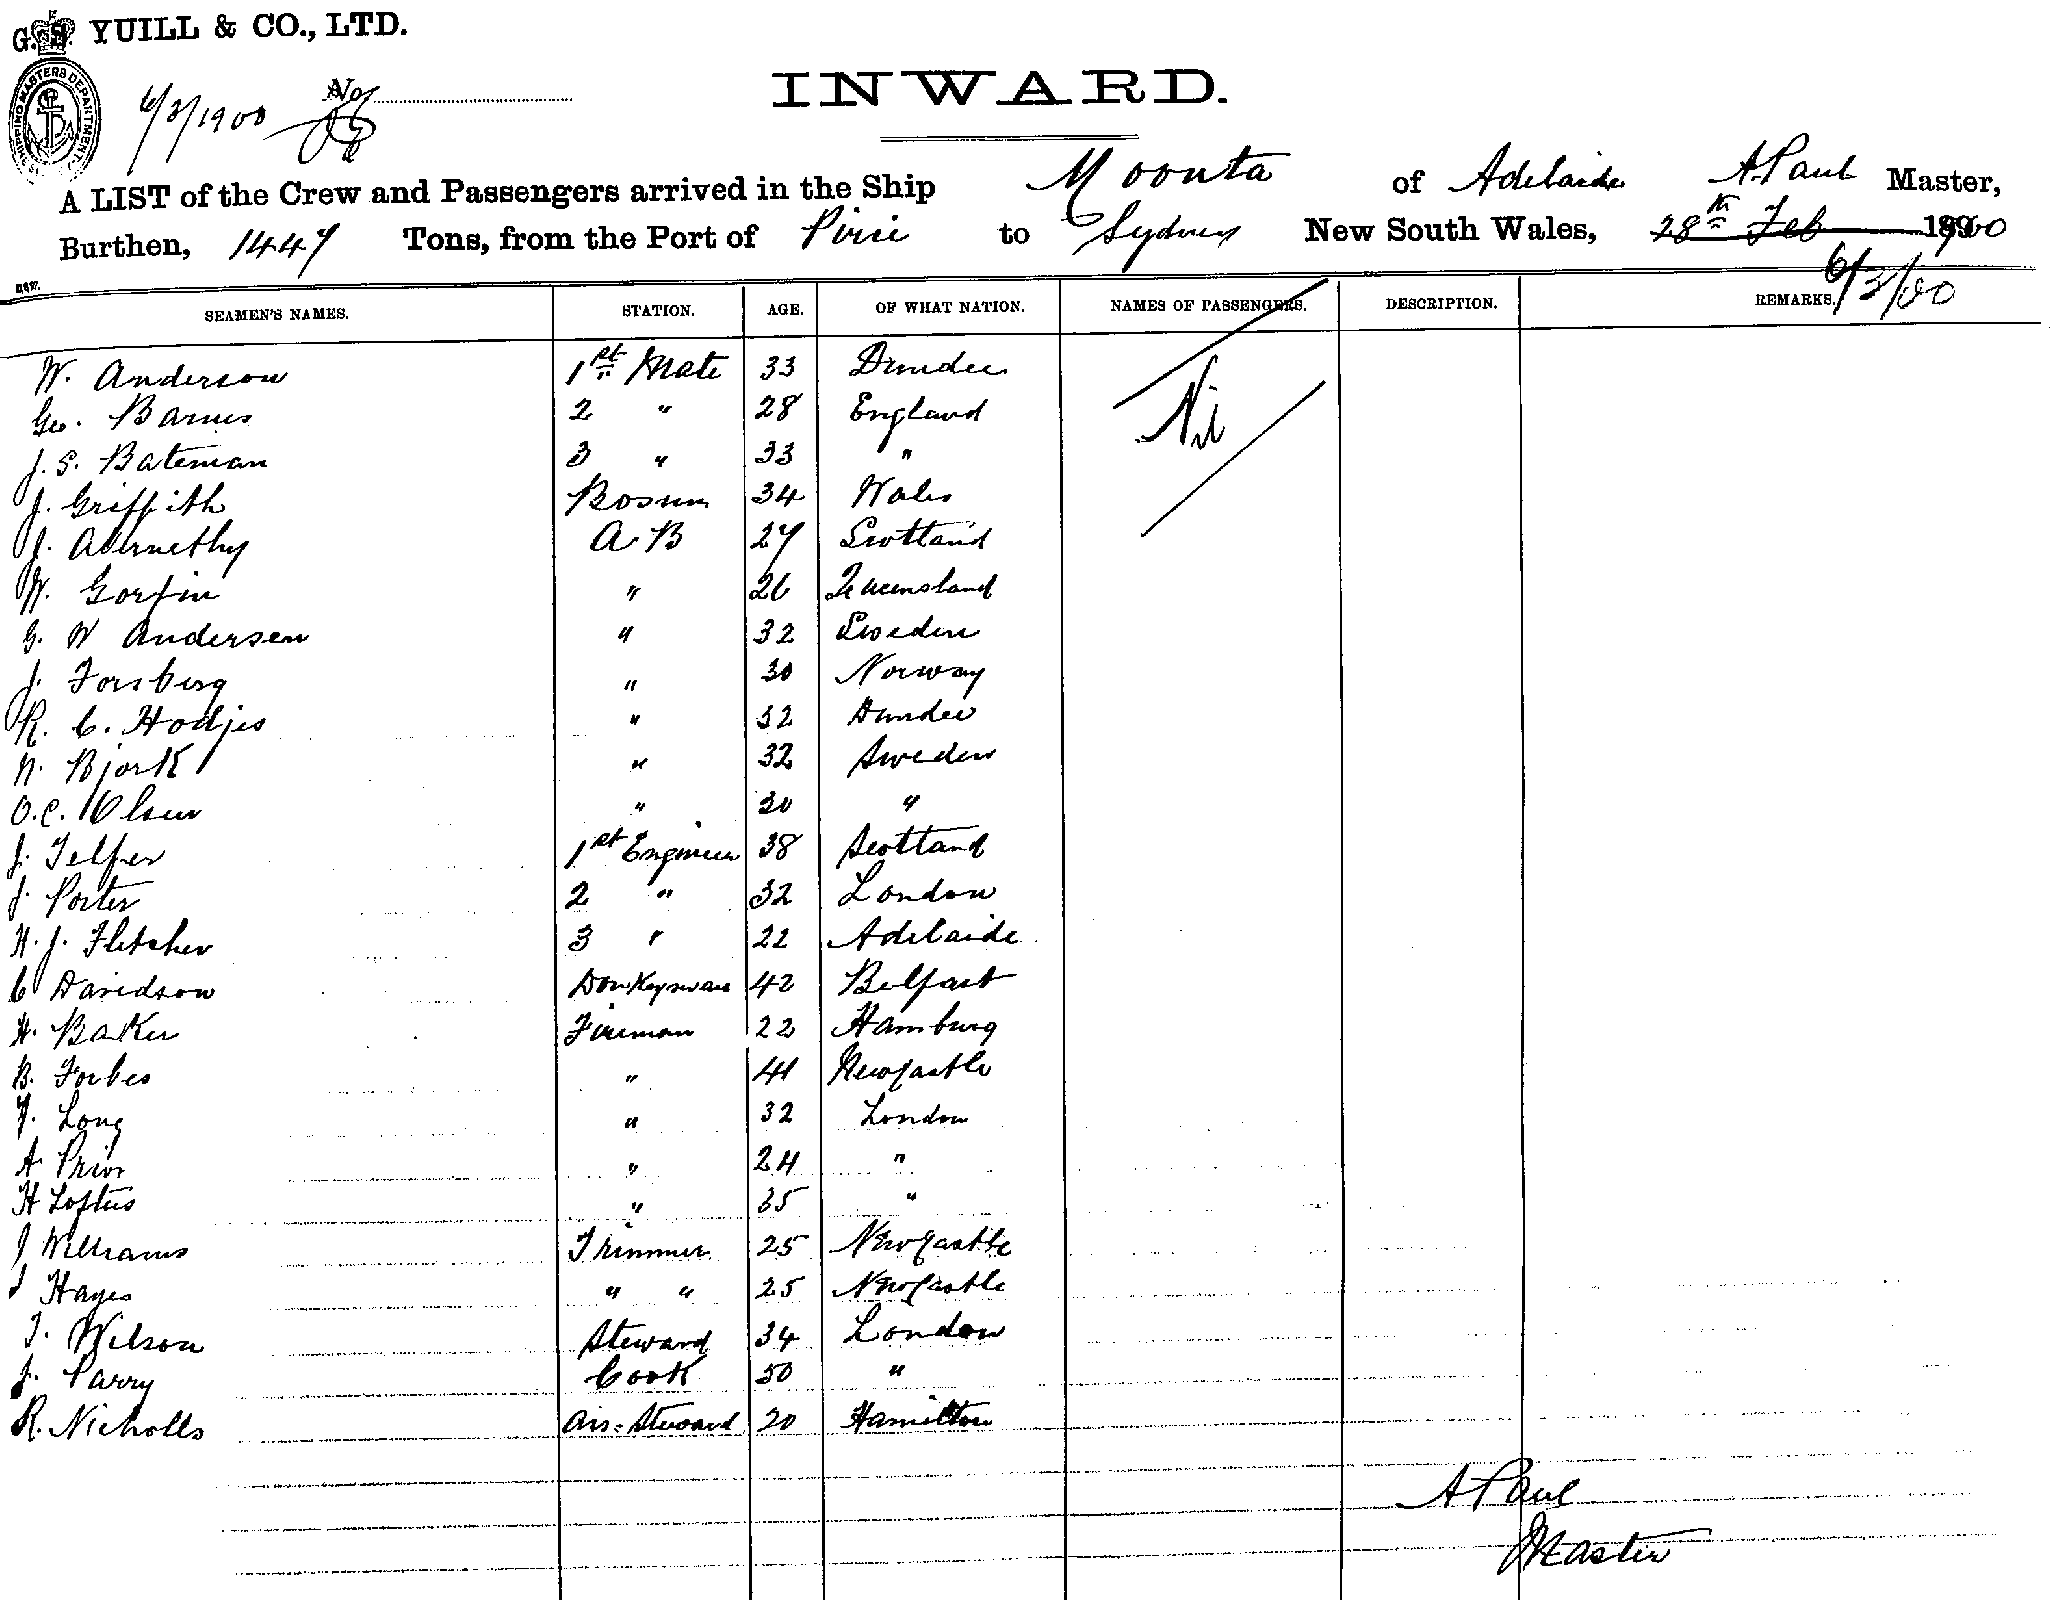 G. S. YUILL & CO., LTD.
SHIPPING MASTERS DEPARTMENT
6/3/1900 No
INWARD.
A LIST of the Crew and Passengers arrived in the Ship Moonta of Adelaide A Paul Master,
Burthen, 1447 Tons, from the Port of Pirie to Sydney New South Wales, 28th Feb 1900
6/3/00
SEAMEN'S NAMES. STATION. AGE. OF WHAT NATION. NAMES OF PASSENGERS. DESCRIPTION. REMARKS.
W. Anderson 1st Mate 33 Dundee
Geo. Barnes 2 " 28 England Nil
J. S. Bateman 3 " 33 "
J. Griffith Bosun 34 Wales
J. Abernethy A B 27 Scotland
W. Gorfin " 26 Queensland
G. W Andersen " 32 Sweden
J. Forsberg " 30 Norway
R. C. Hodjes " 32 Dundee
N. Bjork " 32 Sweden
O. C. Olsen " 30 "
J. Telfer 1st Engineer 38 Scotland
J. Porter 2 " 32 London
H. J. Fletcher 3 " 22 Adelaide
C Davidson Donkeyman 42 Belfast
H. Baker Fireman 22 Hamburg
B. Forbes " 41 Newcastle
F. Long " 32 London
A Prior " 24 "
H Loftus " 35 "
J Williams Trimmer 25 Newcastle
J Hayes " " 25 Newcastle
T. Wilson Steward 34 London
J. Parry Cook 50 "
R. Nicholls Ass: Steward 20 Hamilton
A Paul
Master